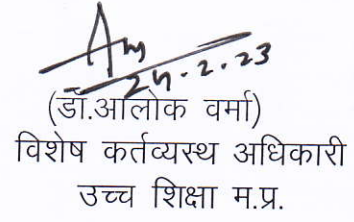 24.2.23
(डॉ.आलोक वर्मा)
विशेष कर्तव्यस्थ अधिकारी
उच्च शिक्षा म.प्र.